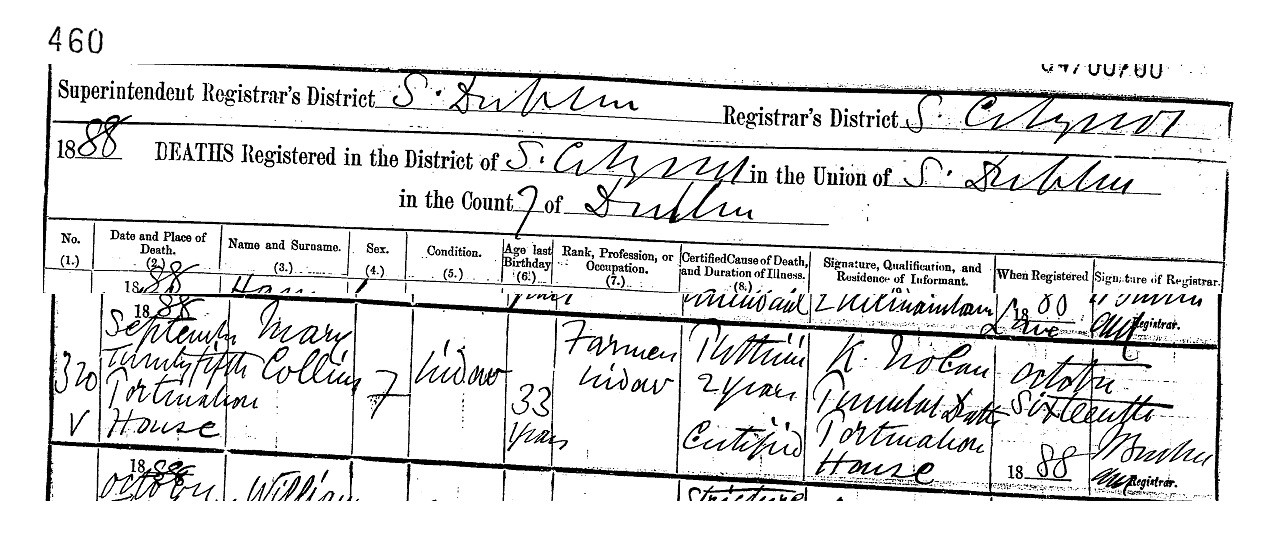 460
04700700
Superintendent Registrar's District S. Dublin Registrar's District S. City No 1
1888 DEATHS Registered in the District of S. City No 1 in the Union of S. Dublin
in the County of Dublin
No. (1.) Date and Place of Death. (2.) Name and Surname. (3.) Sex. (4.) Condition. (5.) Age last Birthday (6.) Rank, Profession, or Occupation. (7.) Certified Cause of Death, and Duration of Illness. (8.) Signature, Qualification, and Residence of Informant. When Registered Signature of Registrar.
1888
years Kilmainham
Registrar.
320
V
1888
September
Twenty fifth
Portunation
House
Mary
Collins
F
Widow
33
years
Farmer
Widow
Phthisis
2 years
Certified
K. Nolan
Present at Death
Portunation
House
October
Sixteenth
1888
Registrar.
1888
October William
Stricture